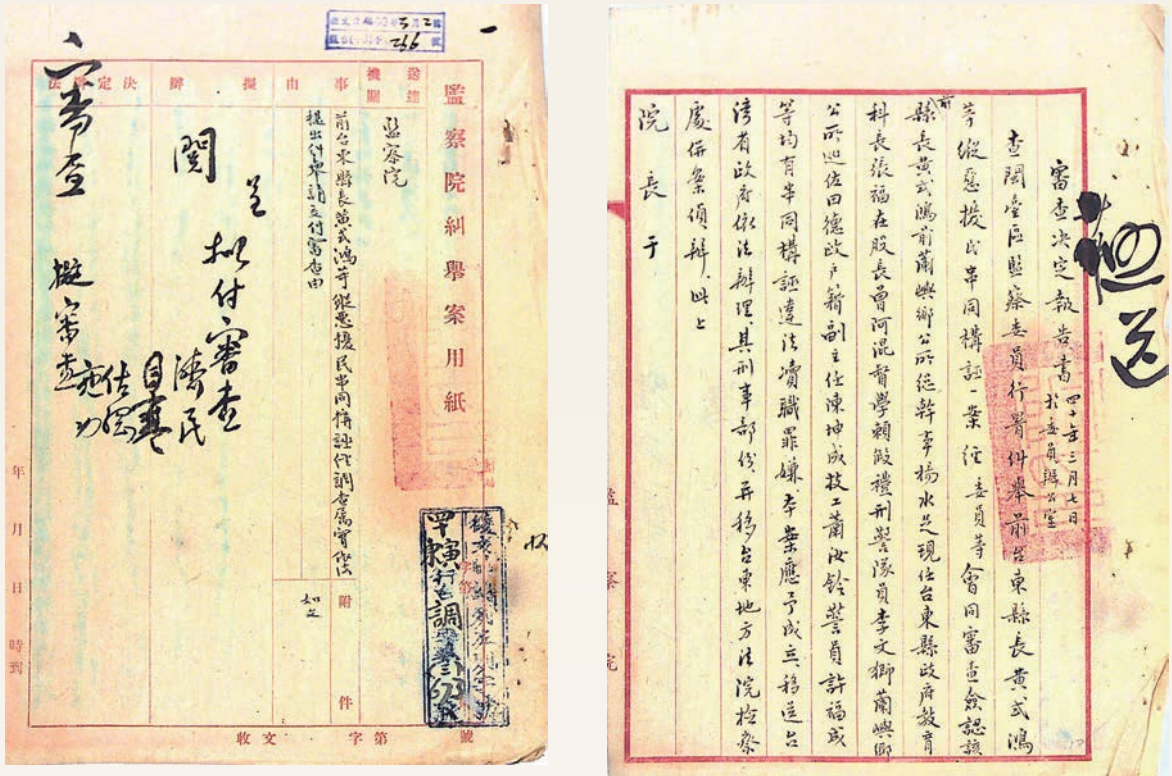 監察院糾舉案用紙
送達機關
監察院
事由
前台東縣長黃式鴻等縱惡擾民串同構誣經調查屬實依法
提出糾舉請交付審查由
附件
如文
擬辦
決定辦法
擬付審查
閱
審查
擬審查
年月日時到
收文字第號
審查決定報告書 四十年三月七日 於委員辦公室
查閱臺區監察委員行署糾舉前台東縣長黃式鴻
等縱惡擾民串同構誣一案經委員等會同審查僉認該
前縣長黃式鴻前蘭嶼鄉公所總幹事楊水足現任台東縣政府教育
科長張福在股長曾阿混督學賴啟禮刑警隊員李文鄉蘭嶼鄉
公所巡佐田德政戶籍副主任陳坤成技工蕭汝銓警員許福成
等均有串同構誣違法瀆職罪嫌本案應予成立移送台
灣省政府依法辦理其刑事部份并移台東地方法院檢察
處併案偵辦、此上
院長于